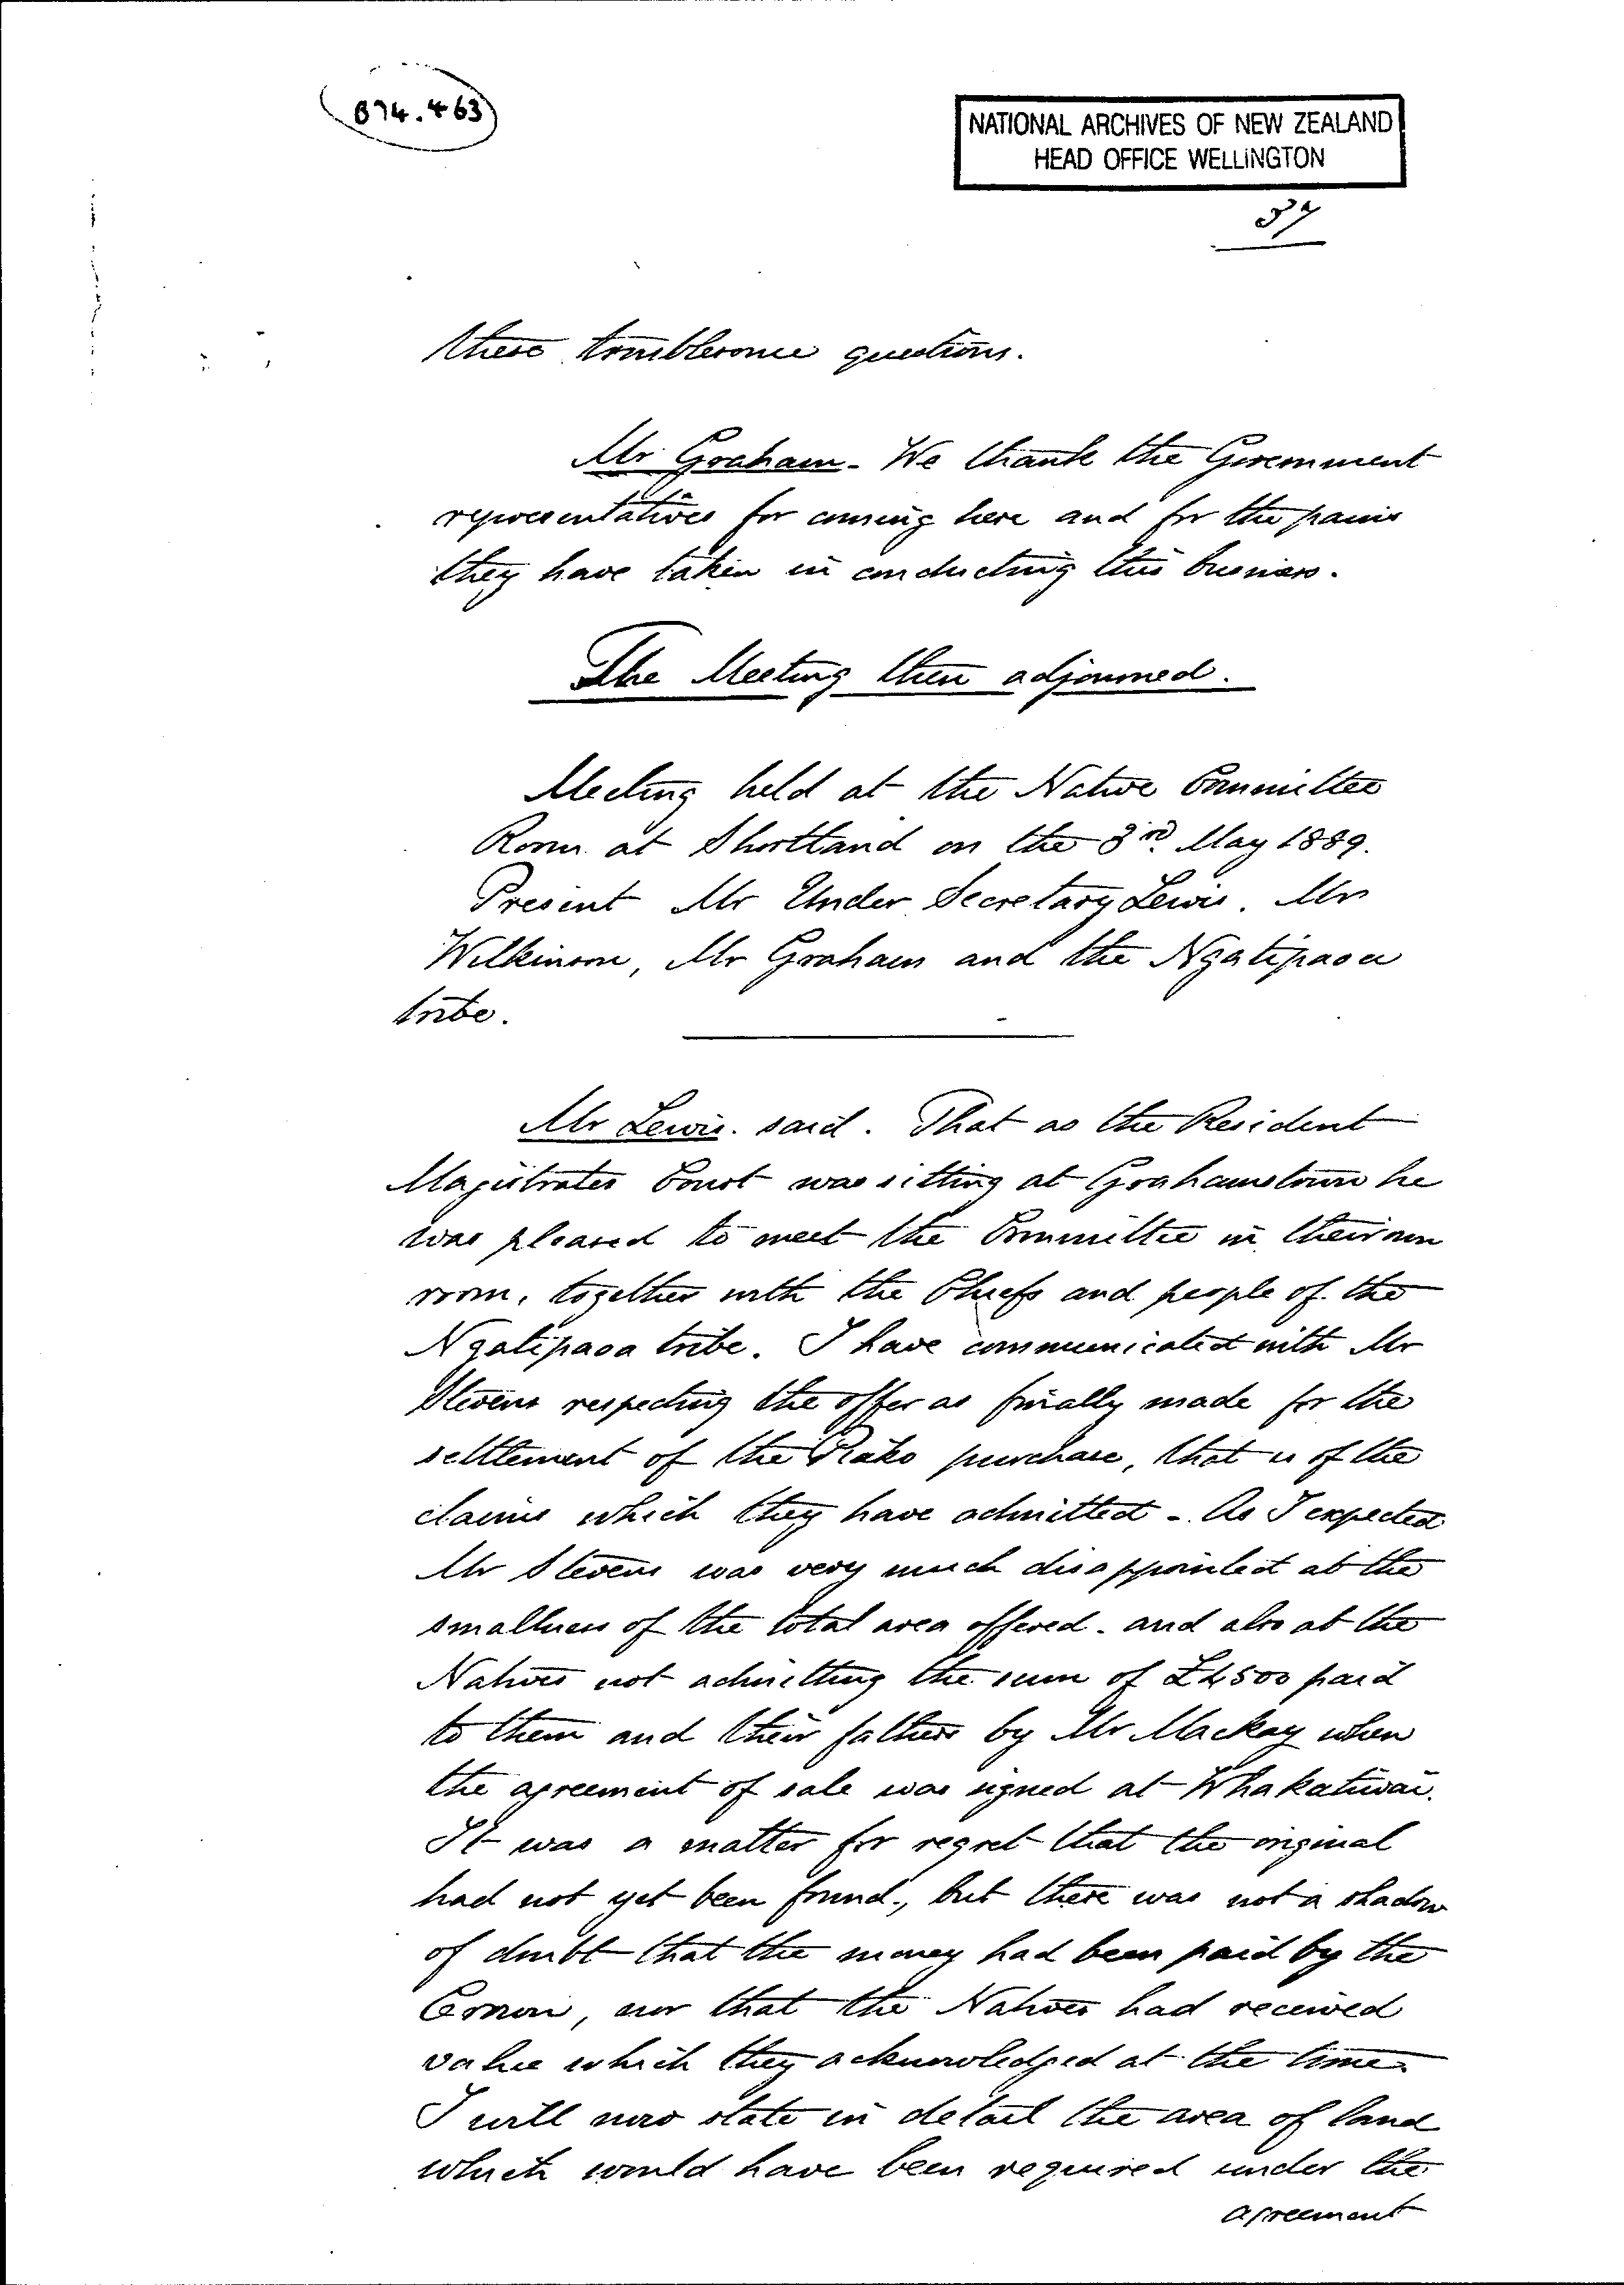 874.463
NATIONAL ARCHIVES OF NEW ZEALAND
HEAD OFFICE WELLINGTON
37
these troublesome questions.
Mr Graham - We thank the Government
representatives for coming here and for the pains
they have taken in conducting this business.
The Meeting then adjourned.
Meeting held at the Native Committee
Room at Shortland on the 3rd. May 1889.
Present Mr Under Secretary Lewis. Mr
Wilkinson, Mr Graham and the Ngatipaoa
tribe.
Mr Lewis. said. That as the Resident
Magistrates Court was sitting at Grahamstown he
was pleased to meet the Committee in their own
room, together with the Chiefs and people of the
Ngatipaoa tribe. I have communicated with Mr
Stevens respecting the offer as finally made for the
settlement of the Piako purchase, that is of the
claims which they have admitted - As I expected
Mr Stevens was very much disappointed at the
smallness of the total area offered - and also at the
Natives not admitting the sum of £4500 paid
to them and their fathers by Mr Mackay when
the agreement of sale was signed at Whakatiwai.
It was a matter for regret that the original
had not yet been found, but there was not a shadow
of doubt that the money had been paid by the
Crown, nor that the Natives had received
value which they acknowledged at the time.
I will now state in detail the area of land
which would have been required under the
agreement